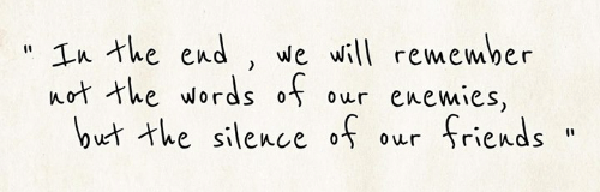 " In the end , we will remember
not the words of our enemies,
but the silence of our friends "